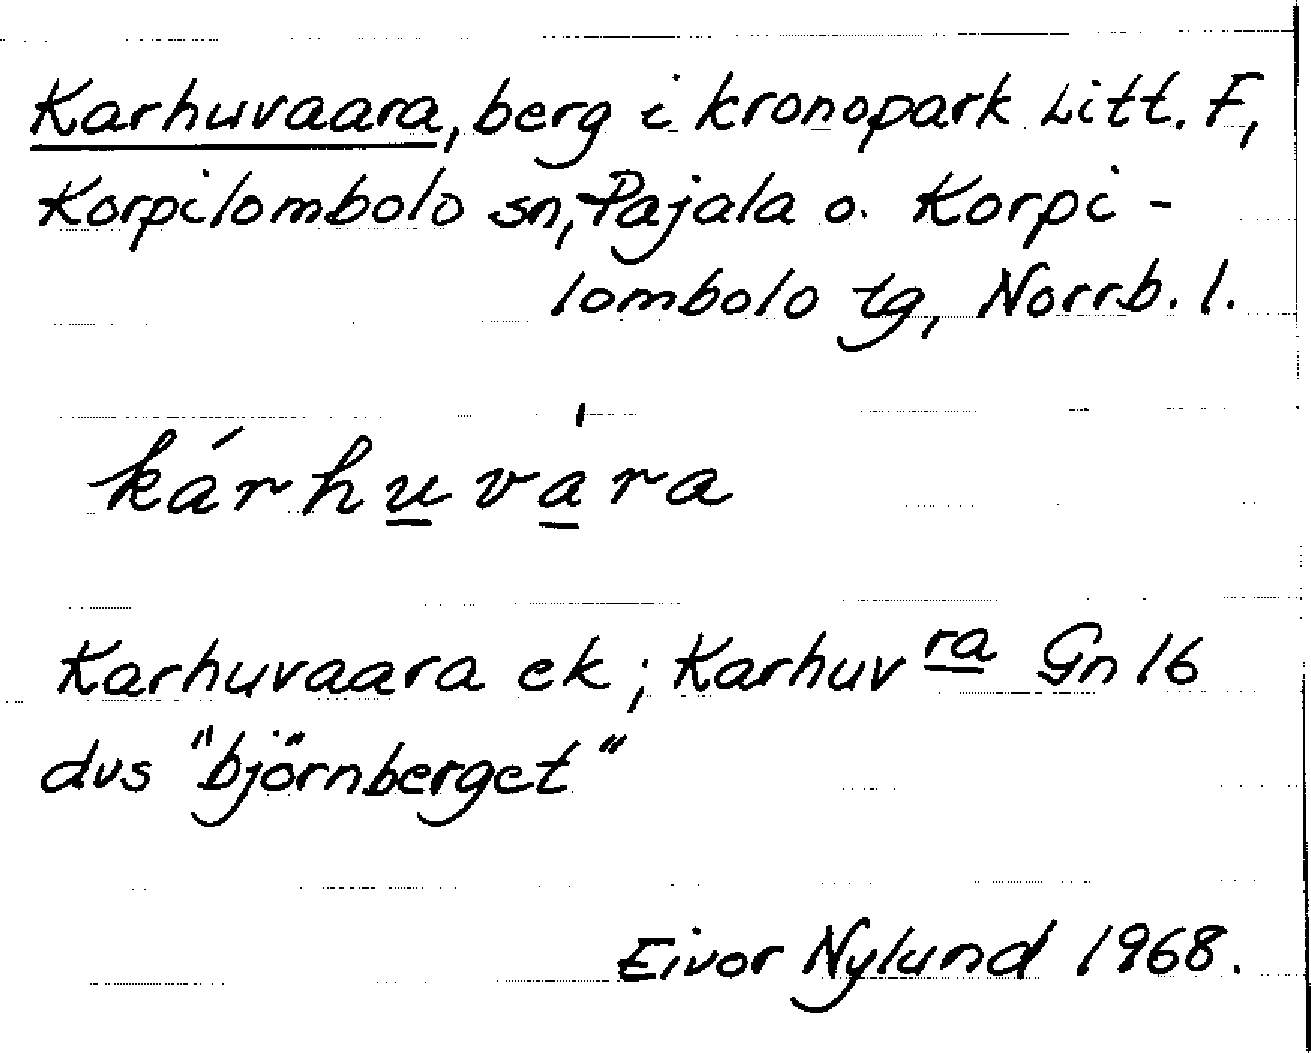 Karhuvaara, berg i kronopark Litt. F,
Korpilombolo sn, Pajala o. Korpi-
lombolo tg, Norrb. l.
kárhu̲va̲̍ra
Karhuvaara ek; Karhuv ra Gn 16
dvs "björnberget"
Eivor Nylund 1968.